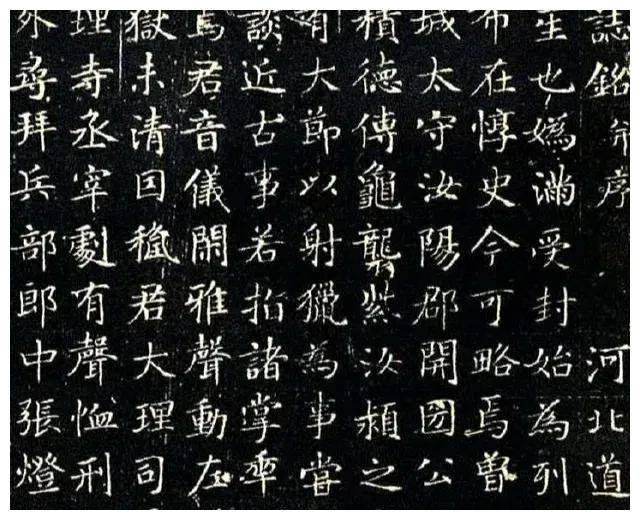 誌銘并序 河北道
生也媯滿受封始為列
布在惇史今可略焉曾
城太守汝陽郡開國公
積德傳龜襲紫汝潁之
有大節以射獵為事嘗
談近古事若指諸掌率
焉君音儀閑雅聲動左
獄未清因君大理司
理寺丞宰劇有聲恤刑
外尋拜兵部郎中張燈